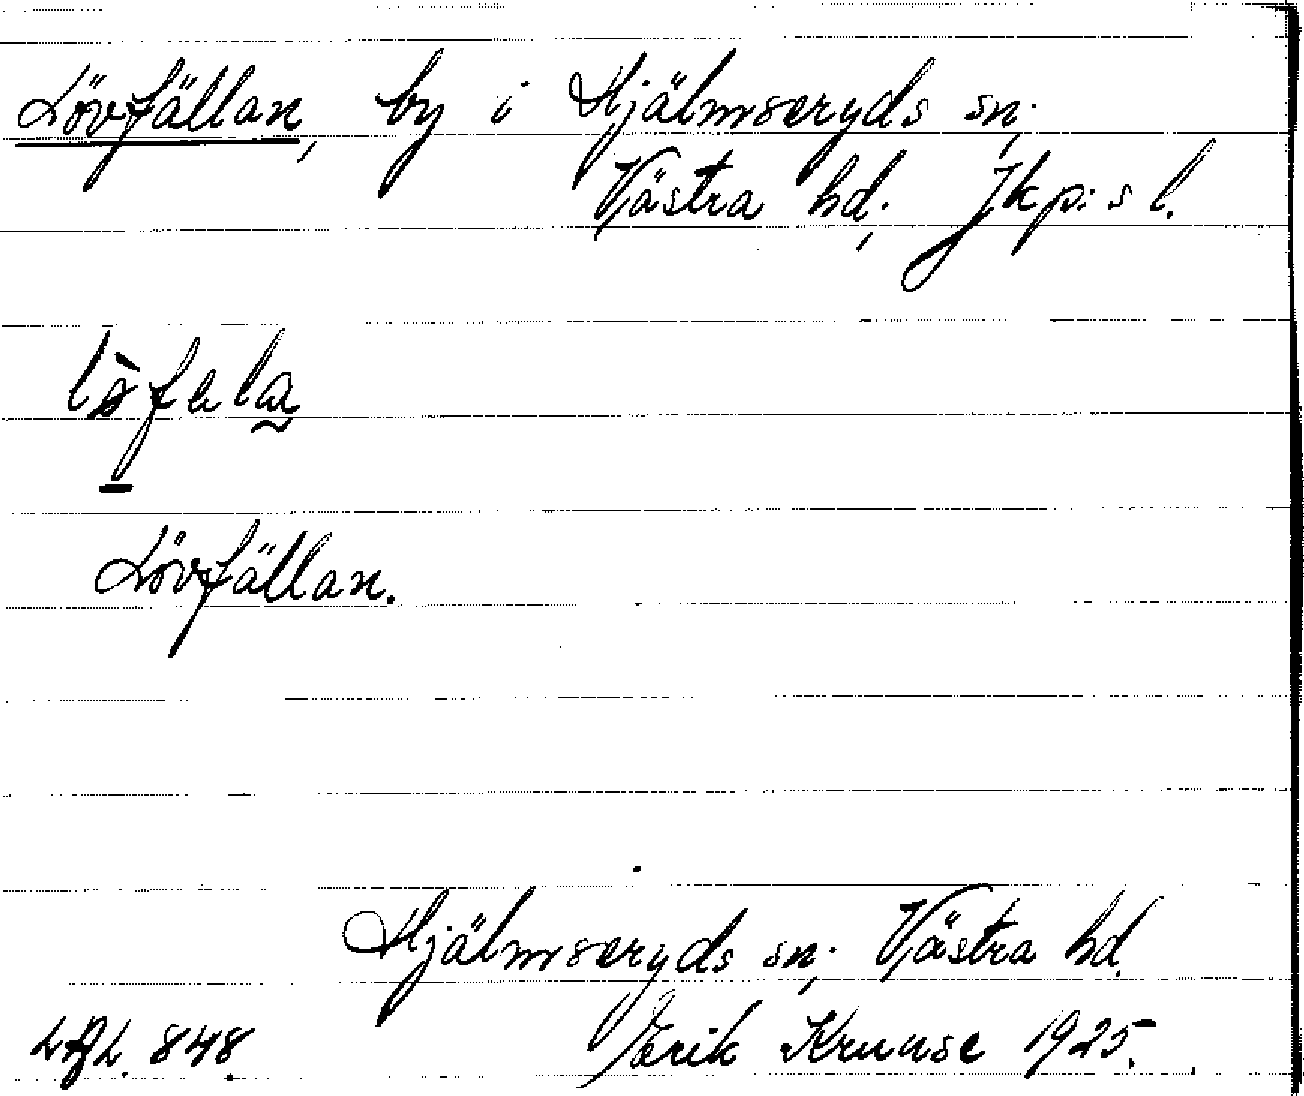 Lövfällan, by i Hjälmseryds sn.,
Västra hd., Jkp:s l.
Lövfällan.
Hjälmseryds sn., Västra hd.
848. Erik Kruuse 1925.